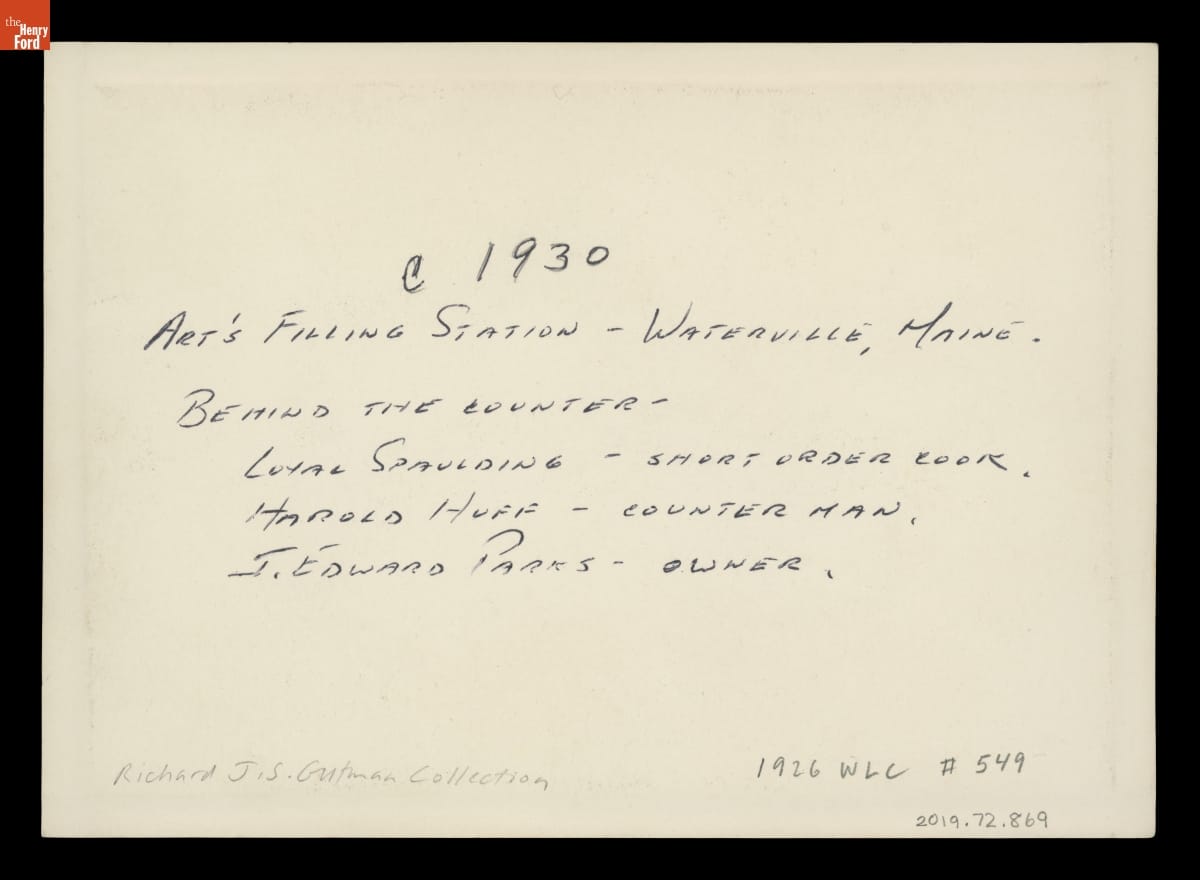 the
Henry
Ford
C 1930
ART'S FILLING STATION - WATERVILLE, MAINE.
BEHIND THE COUNTER -
LOYAL SPAULDING - SHORT ORDER COOK.
HAROLD HUFF - COUNTER MAN.
J. EDWARD PARKS - OWNER.
Richard J.S. Gutman Collection
1926 WLC # 549
2019.72.869